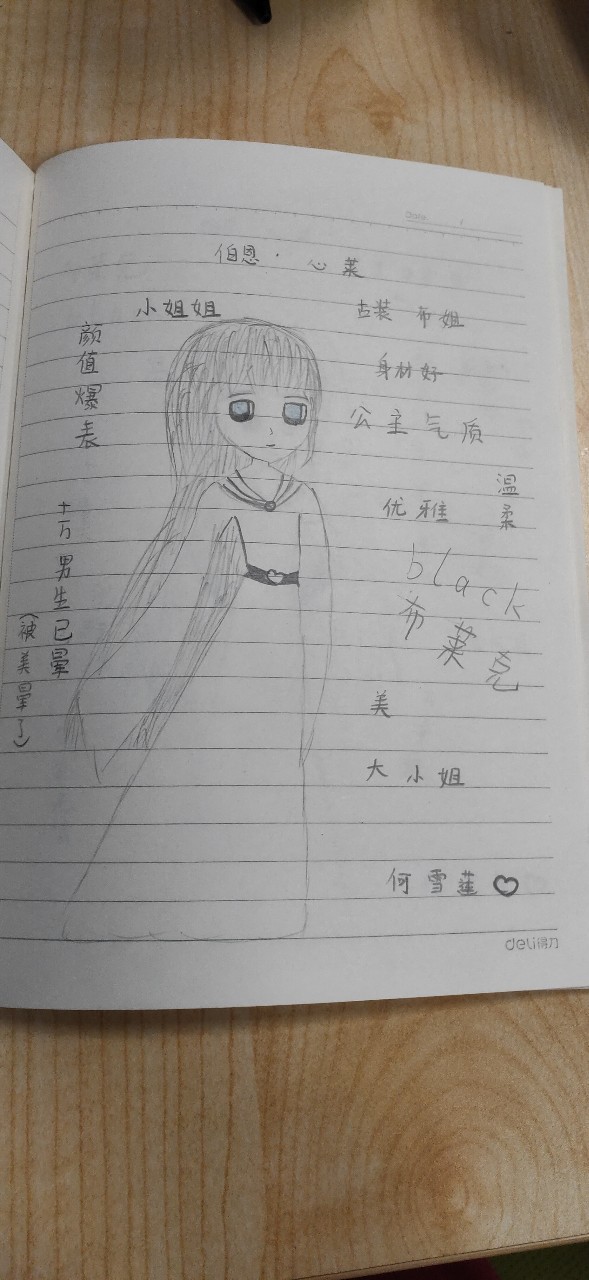 Date
伯恩·心莱
小姐姐
古装布姐
颜值爆表
身材好
公主气质
温柔
优雅
十万男生已晕
(被美晕了)
black
布莱克
美
大小姐
何雪莲♡
deli得力